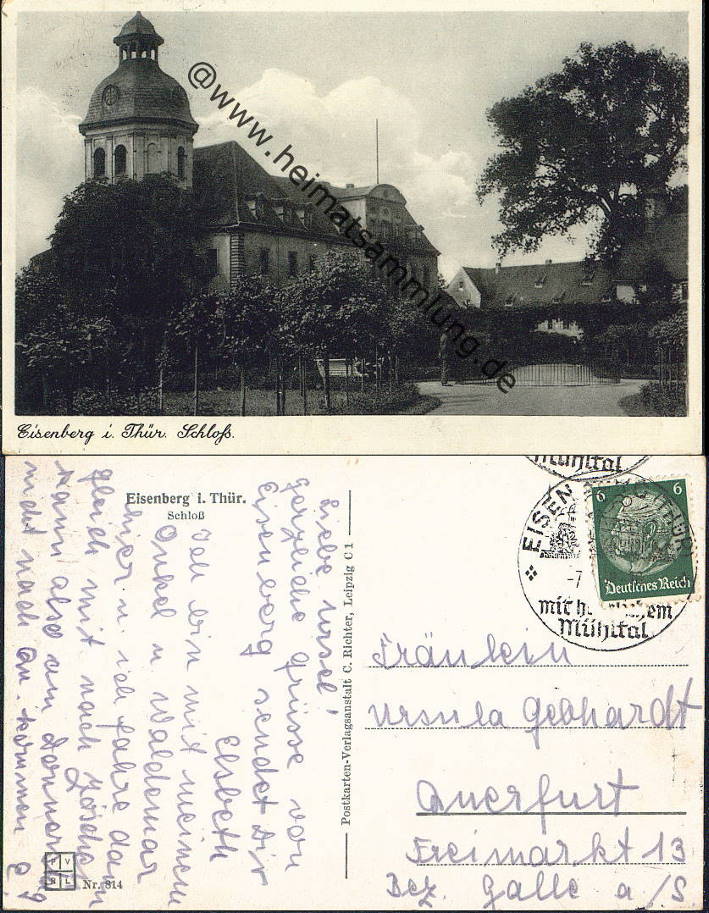 @www.heimatsammlung.de
Eisenberg i. Thür. Schloß.
Eisenberg i. Thür.
Schloß
Liebe Ursel!
Herzliche Grüsse von
Eisenberg sendet Dir
Elsbeth
Ich bin mit meinem
Onkel u Waldemar
hier u. ich fahre dann
gleich mit nach
kann also am Donners
nicht nach Qu. kommen
Postkarten-Verlagsanstalt C. Richter, Leipzig C 1
P V
R L
Nr. 814
Mühltal
EISEN
-7
mit h em
Mühltal
6 6
Deutsches Reich
Fräulein
Ursula Gebhardt
Querfurt
Freimarkt 13
Bez. Halle a/S.